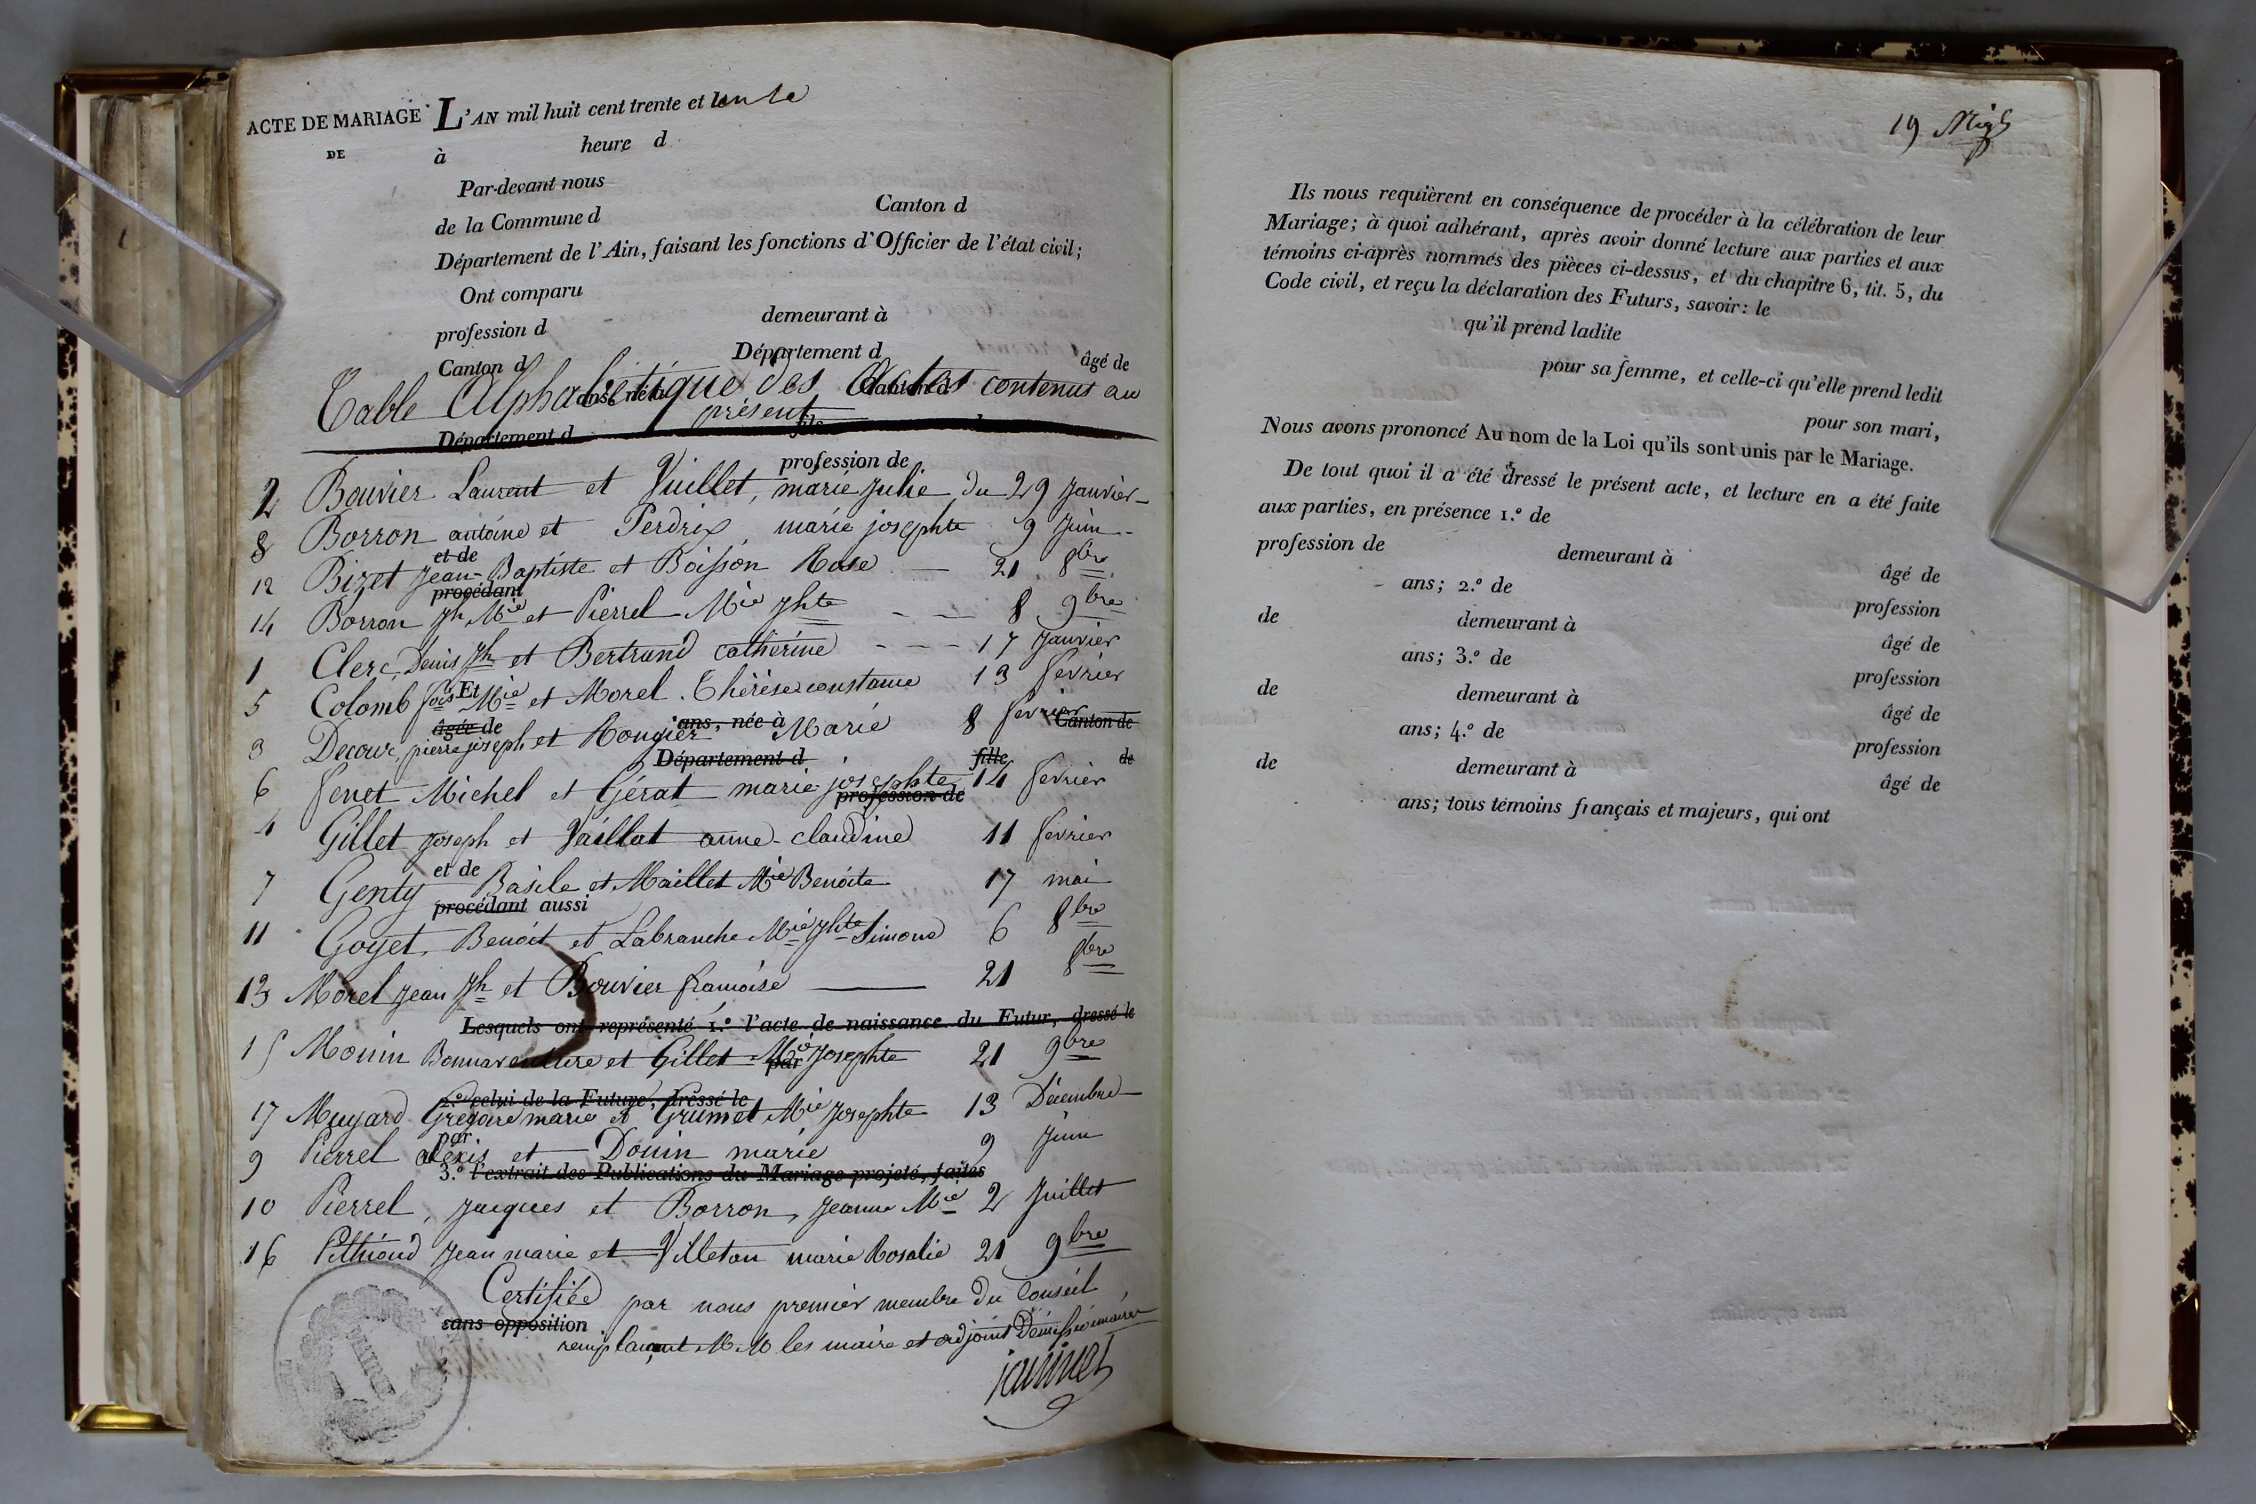 ACTE DE MARIAGE
DE
L'AN mil huit cent trente et
à heure d
Par-devant nous
de la Commune d Canton d
Département de l'Ain, faisant les fonctions d'Officier de l'état civil;
Ont comparu
profession d demeurant à
Canton d Département d âgé de
Table Alphabétique des actes contenus au
présent
Département d fils
profession de
2 Bouvier Laurent et Vuillet, marie julie du 29 Janvier
8 Borron antoine et Perdrix marie josephte 9 Juin
et de
12 Bizet Jean-Baptiste et Boisson Rose 21 8bre
procédant
14 Borron Jh Mie et Pierrel Mie Jhte 8 9bre
1 Clerc, Denis Jh et Bertrand catherine 17 Janvier
Et
5 Colomb fois Mie et Morel Thérèse constance 13 fevrier
âgée de ans, née à Canton de
3 Decour, pierre joseph et Rougier Marie 8 fevrier
Département d fille de
6 fenet Michel et Gérat marie josephte 14 fevrier
profession de
4 Gillet Joseph et Vaillat anne claudine 11 fevrier
et de
7 Genty Basile et Maillet Mie Benoite 17 mai
procédant aussi
11 Goyet, Benoit et Labranche Mie Jhte Simone 6 8bre
13 Morel Jean Jh et Bouvier francoise 21 8bre
Lesquels ont représenté 1.º l'acte de naissance du Futur, dressé le
15 Monin Bonnaventure et Gillet Mie Josephte 21 9bre
par
2.º celui de la Future, dressé le
17 Muyard Grégoire marie et Grumet Mie Josephte 13 Décembre
par
9 Pierrel alexis et Douin marie 9 Juin
3.º l'extrait des Publications du Mariage projeté, faites
10 Pierrel, Jacques et Borron, Jeanne Mie 2 Juillet
16 Pithioud Jean marie et Villeton marie Rosalie 21 9bre
Certifiée par nous premier membre du Conseil
sans opposition
remplaçant MM les maire et adjoint Démissionnaires
19
Ils nous requièrent en conséquence de procéder à la célébration de leur
Mariage; à quoi adhérant, après avoir donné lecture aux parties et aux
témoins ci-après nommés des pièces ci-dessus, et du chapitre 6, tit. 5, du
Code civil, et reçu la déclaration des Futurs, savoir: le
qu'il prend ladite
pour sa femme, et celle-ci qu'elle prend ledit
pour son mari,
Nous avons prononcé Au nom de la Loi qu'ils sont unis par le Mariage.
De tout quoi il a été dressé le présent acte, et lecture en a été faite
aux parties, en présence 1.º de
profession de demeurant à âgé de
ans; 2.º de profession
de demeurant à âgé de
ans; 3.º de profession
de demeurant à âgé de
ans; 4.º de profession
de demeurant à âgé de
ans; tous témoins français et majeurs, qui ont